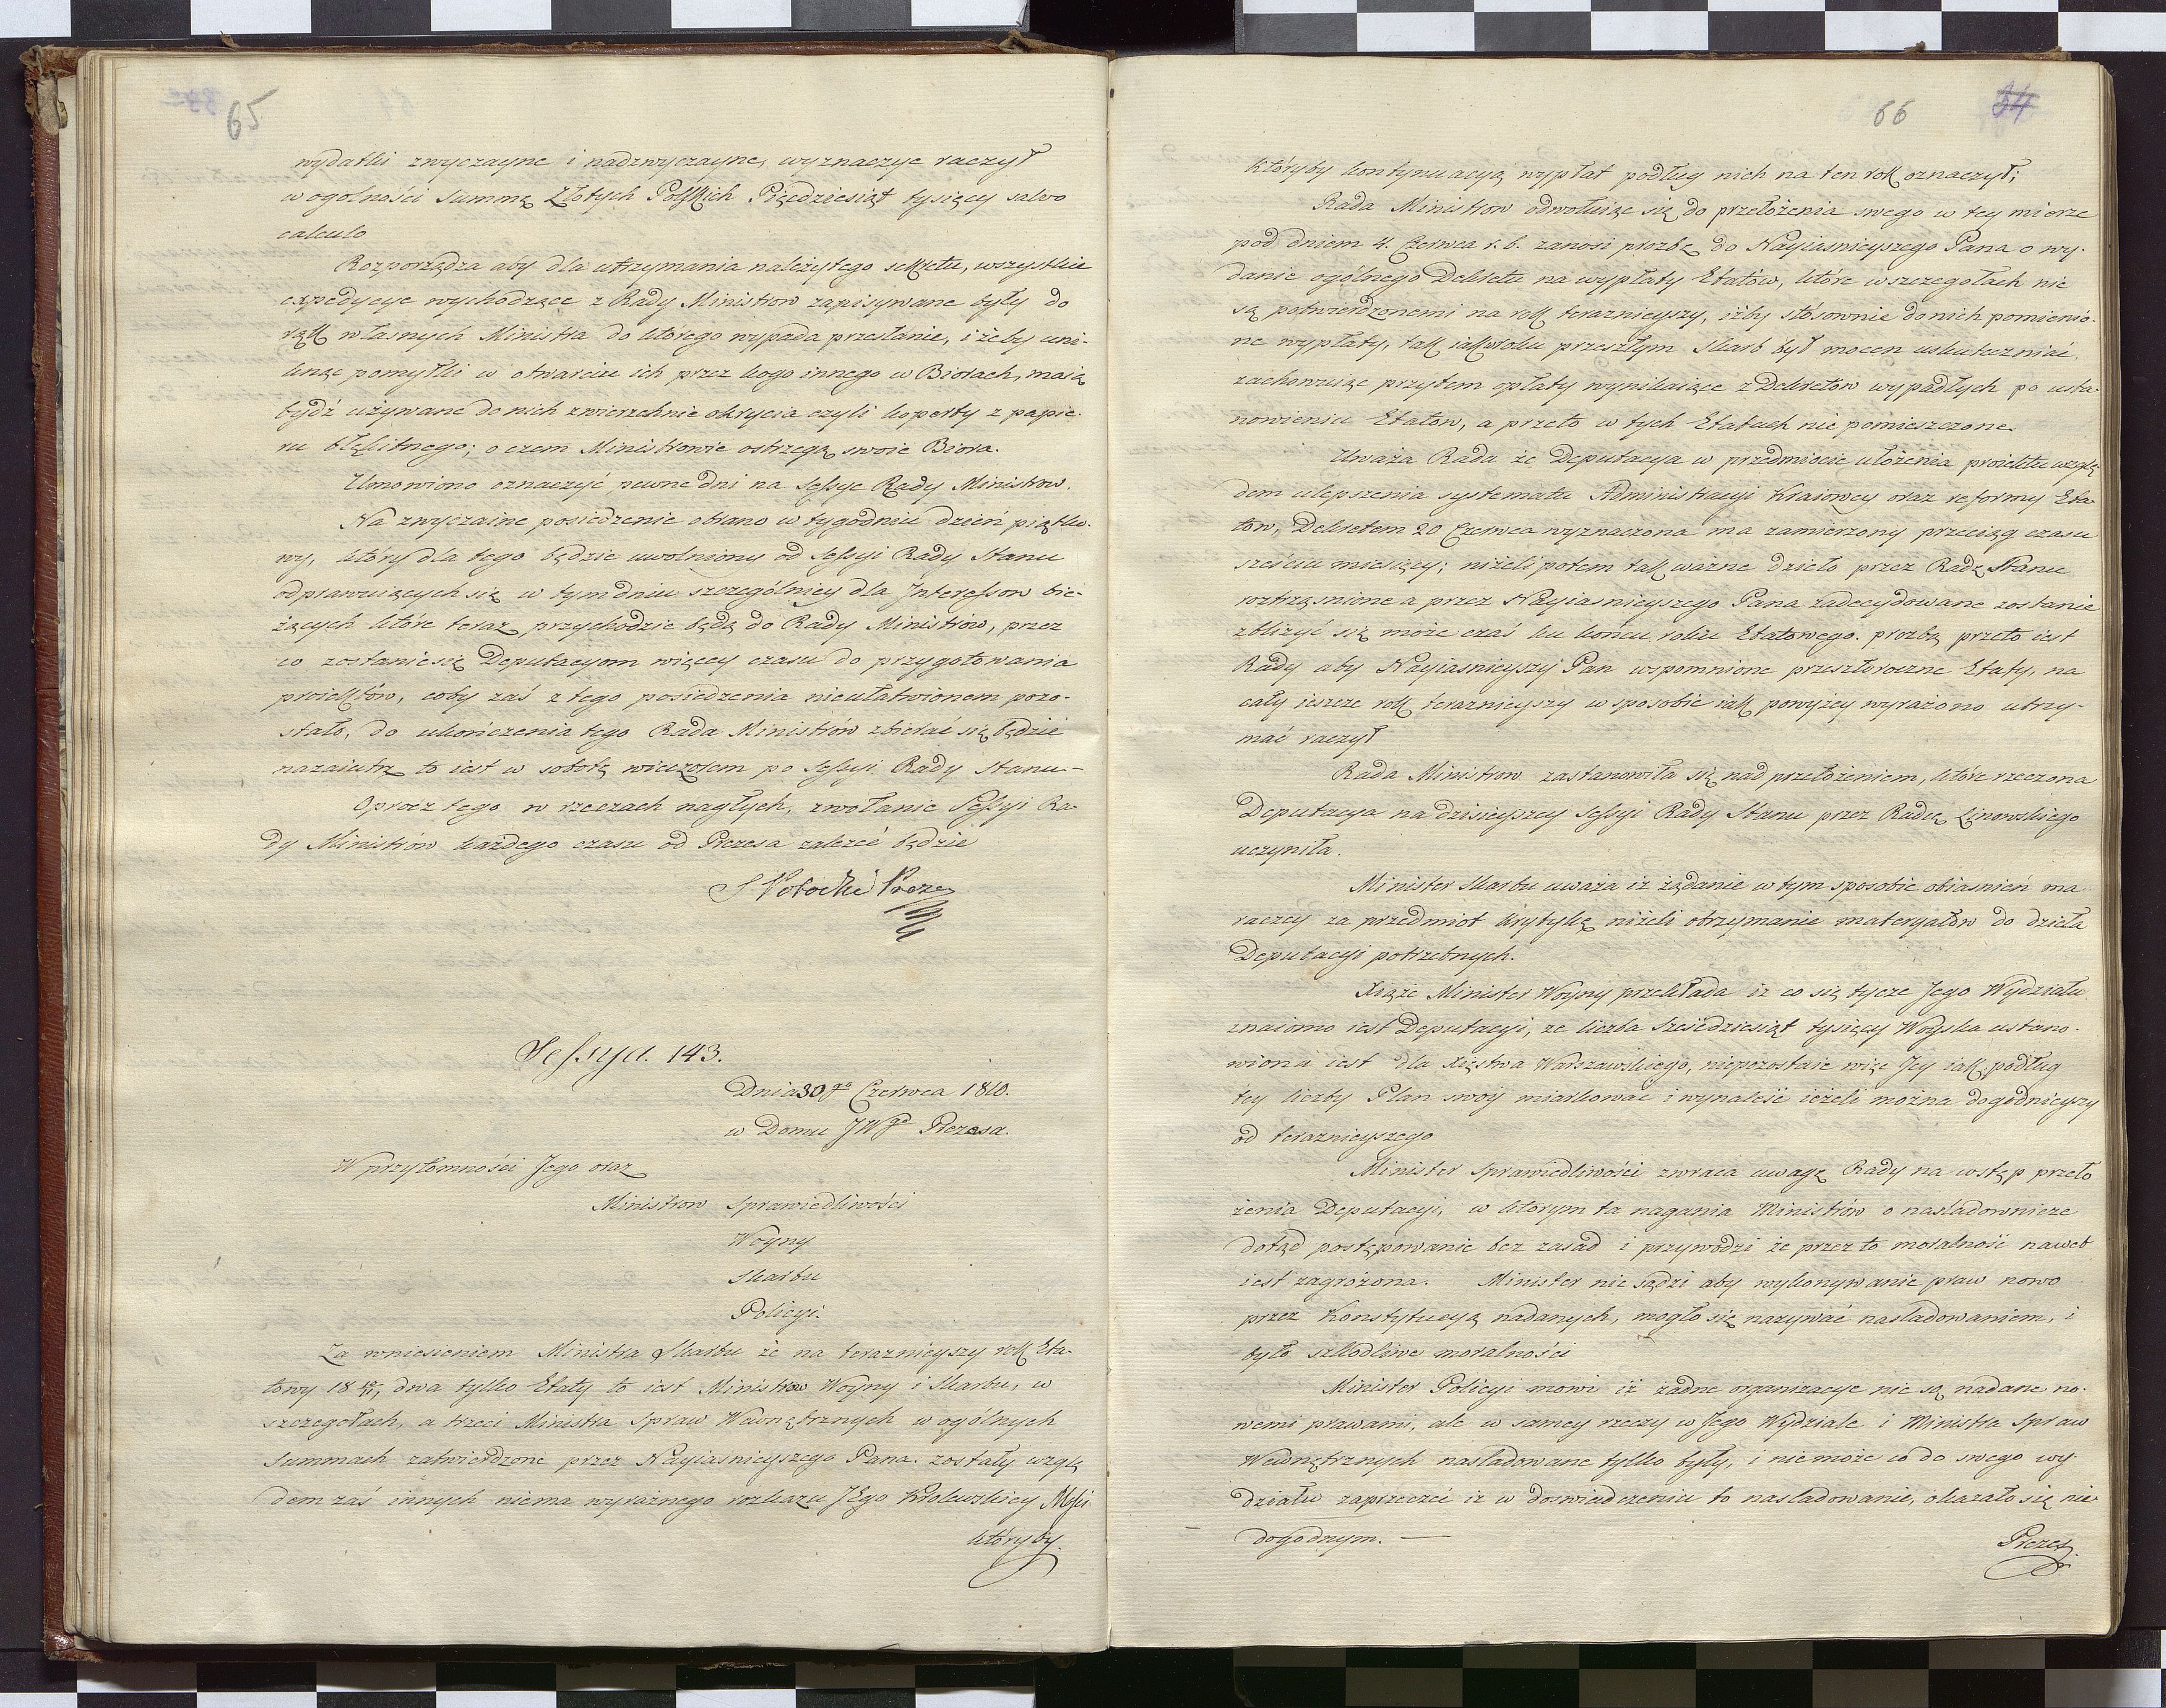 65
wydatki zwyczayne i nadzwyczayne, wyznaczyć raczył
w ogolności Summę Złotych Polskich Pięćdziesiąt tysięcy salvo
calculo
Rozporządza aby dla utrzymania należytego sekretu, wszystkie
expedycye wychodzące z Rady Ministrow zapisywane były do
rąk własnych Ministra do którego wypada przesłanie, i żeby uni-
knąć pomyłki w otwarciu ich przez kogo innego w Biorach, maią
bydź używane do nich zwierzchnie okrycia czyli koperty z papie-
ru błękitnego; o czem Ministrowie ostrzegą swoie Biora.
Umowiono oznaczyć pewne dni na Sessye Rady Ministrow.
Na zwyczaine posiedzenie obrano w tygodniu dzień piątko-
wy, który dla tego będzie uwolniony od Sessyi Rady Stanu
odprawuiących się w tym dniu szczególniey dla Interessow bie-
żących które teraz przychodzić będą do Rady Ministrów, przez
co zostanie się Deputacyom więcey czasu do przygotowania
proiektów, coby zaś z tego posiedzenia nieułatwionem pozo-
stało, do ukończenia tego Rada Ministrów zbierać się będzie
nazaiutrz to iest w sobotę wieczorem po Sessyi Rady Stanu –
Oprocz tego w rzeczach nagłych, zwołanie Sessyi Ra-
dy Ministrów każdego czasu od Prezesa zależeć będzie
S Potocki Prezes
Sessya. 143.
Dnia 30go Czerwca 1810.
w Domu JWgo Prezesa.
W przytomności Jego oraz
Ministrow Sprawiedliwości
Woyny
Skarbu
Policyi.
Za wniesieniem Ministra Skarbu że na terazniejszy rok Eta-
towy 18 10/11, dwa tylko Etaty to iest Ministrow Woyny i Skarbu, w
szczegołach, a trzeci Ministra Spraw Wewnętrznych w ogólnych
Summach zatwierdzone przez Nayiasnieyszego Pana. zostały wzglę
dem zaś innych niema wyraźnego rozkazu JEgo Krolewskiey Mści.
któryby.
66 34
któryby kontynuacyą wypłat podług nich na ten rok oznaczył;
Rada Ministrow odwołuiąc się do przełożenia swego w tey mierze
pod dniem 4. Czerwca r. b. zanosi prozbę do Nayiasnieyszego Pana o wy-
danie ogólnego Dekretu na wypłaty Etatów, które w szczegołach nie
są potwierdzonemi na rok teraznieyszy, iżby stósownie do nich pomienio-
ne wypłaty, tak iak w roku przeszłym Skarb był mocen uskuteczniać,
zachowuiąc przytem opłaty wynikaiące z Dekretow wypadłych po usta-
nowieniu Etatow, a przeto w tych Etatach nie pomieszczone.
Uważa Rada że Deputacya w przedmiocie ułożenia proiektu wzglę
dem ulepszenia systematu Administracyi Kraiowey oraz reformy Eta-
tow, Dekretem 20 Czerwca wyznaczona ma zamierzony przeciąg czasu
sześciu miesięcy; niżeli potem tak ważne dzieło przez Radę Stanu
roztrząsnione a przez Nayiasnieyszego Pana zadecydowane zostanie
zbliżyć się może czas ku końcu roku Etatowego. prozbą przeto iest
Rady aby Nayiasnieyszy Pan wspomnione przeszłoroczne Etaty, na
cały ieszcze rok teraznieyszy w sposobie iak powyżey wyrażono utrzy-
mać raczył
Rada Ministrow zastanowiła się nad przełożeniem, które rzeczona
Deputacya na dzisieyszey Sessyi Rady Stanu przez Radcę Linowskiego
uczyniła.
Minister Skarbu uważa iż żądanie w tym sposobie obiasnień ma
raczey za przedmiot krytykę niżeli otrzymanie materyałów do dzieła
Deputacyi potrzebnych.
Xiąże Minister Woyny przekłada iż co się tycze Jego Wydziału
znaiomo iest Deputacyi, ze liczba Sześćdziesiąt tysięcy Woyska ustano-
wiona iest dla Xięstwa Warszawskiego, niepozostaie więc Jey iak podług
tey liczby Plan swoy miarkować i wynaleść ieżeli można dogodnieyszy
od teraznieyszego
Minister Sprawiedliwości zwraca uwagę Rady na wstęp przeło
żenia Deputacyi, w którym ta nagania Ministrów o nasladownicze
dotąd postępowanie bez zasad i przywodzi że przez to moralność nawet
iest zagrożona. Minister nie sądzi aby wykonywanie praw nowo
przez Konstytucyą nadanych, mogło się nazywać nasladowaniem, i
było szkodliwe moralności
Minister Policyi mowi iż żadne organizacye nie są nadane no-
wemi prawami, ale w samey rzeczy w Jego Wydziale i Ministra Spraw
Wewnętrznych nasladowane tylko były, i nie może co do swego wy
działu zaprzeczeć iż w doswiadczeniu to nasladowanie, okazało się nie-
dogodnym. —
Prezes